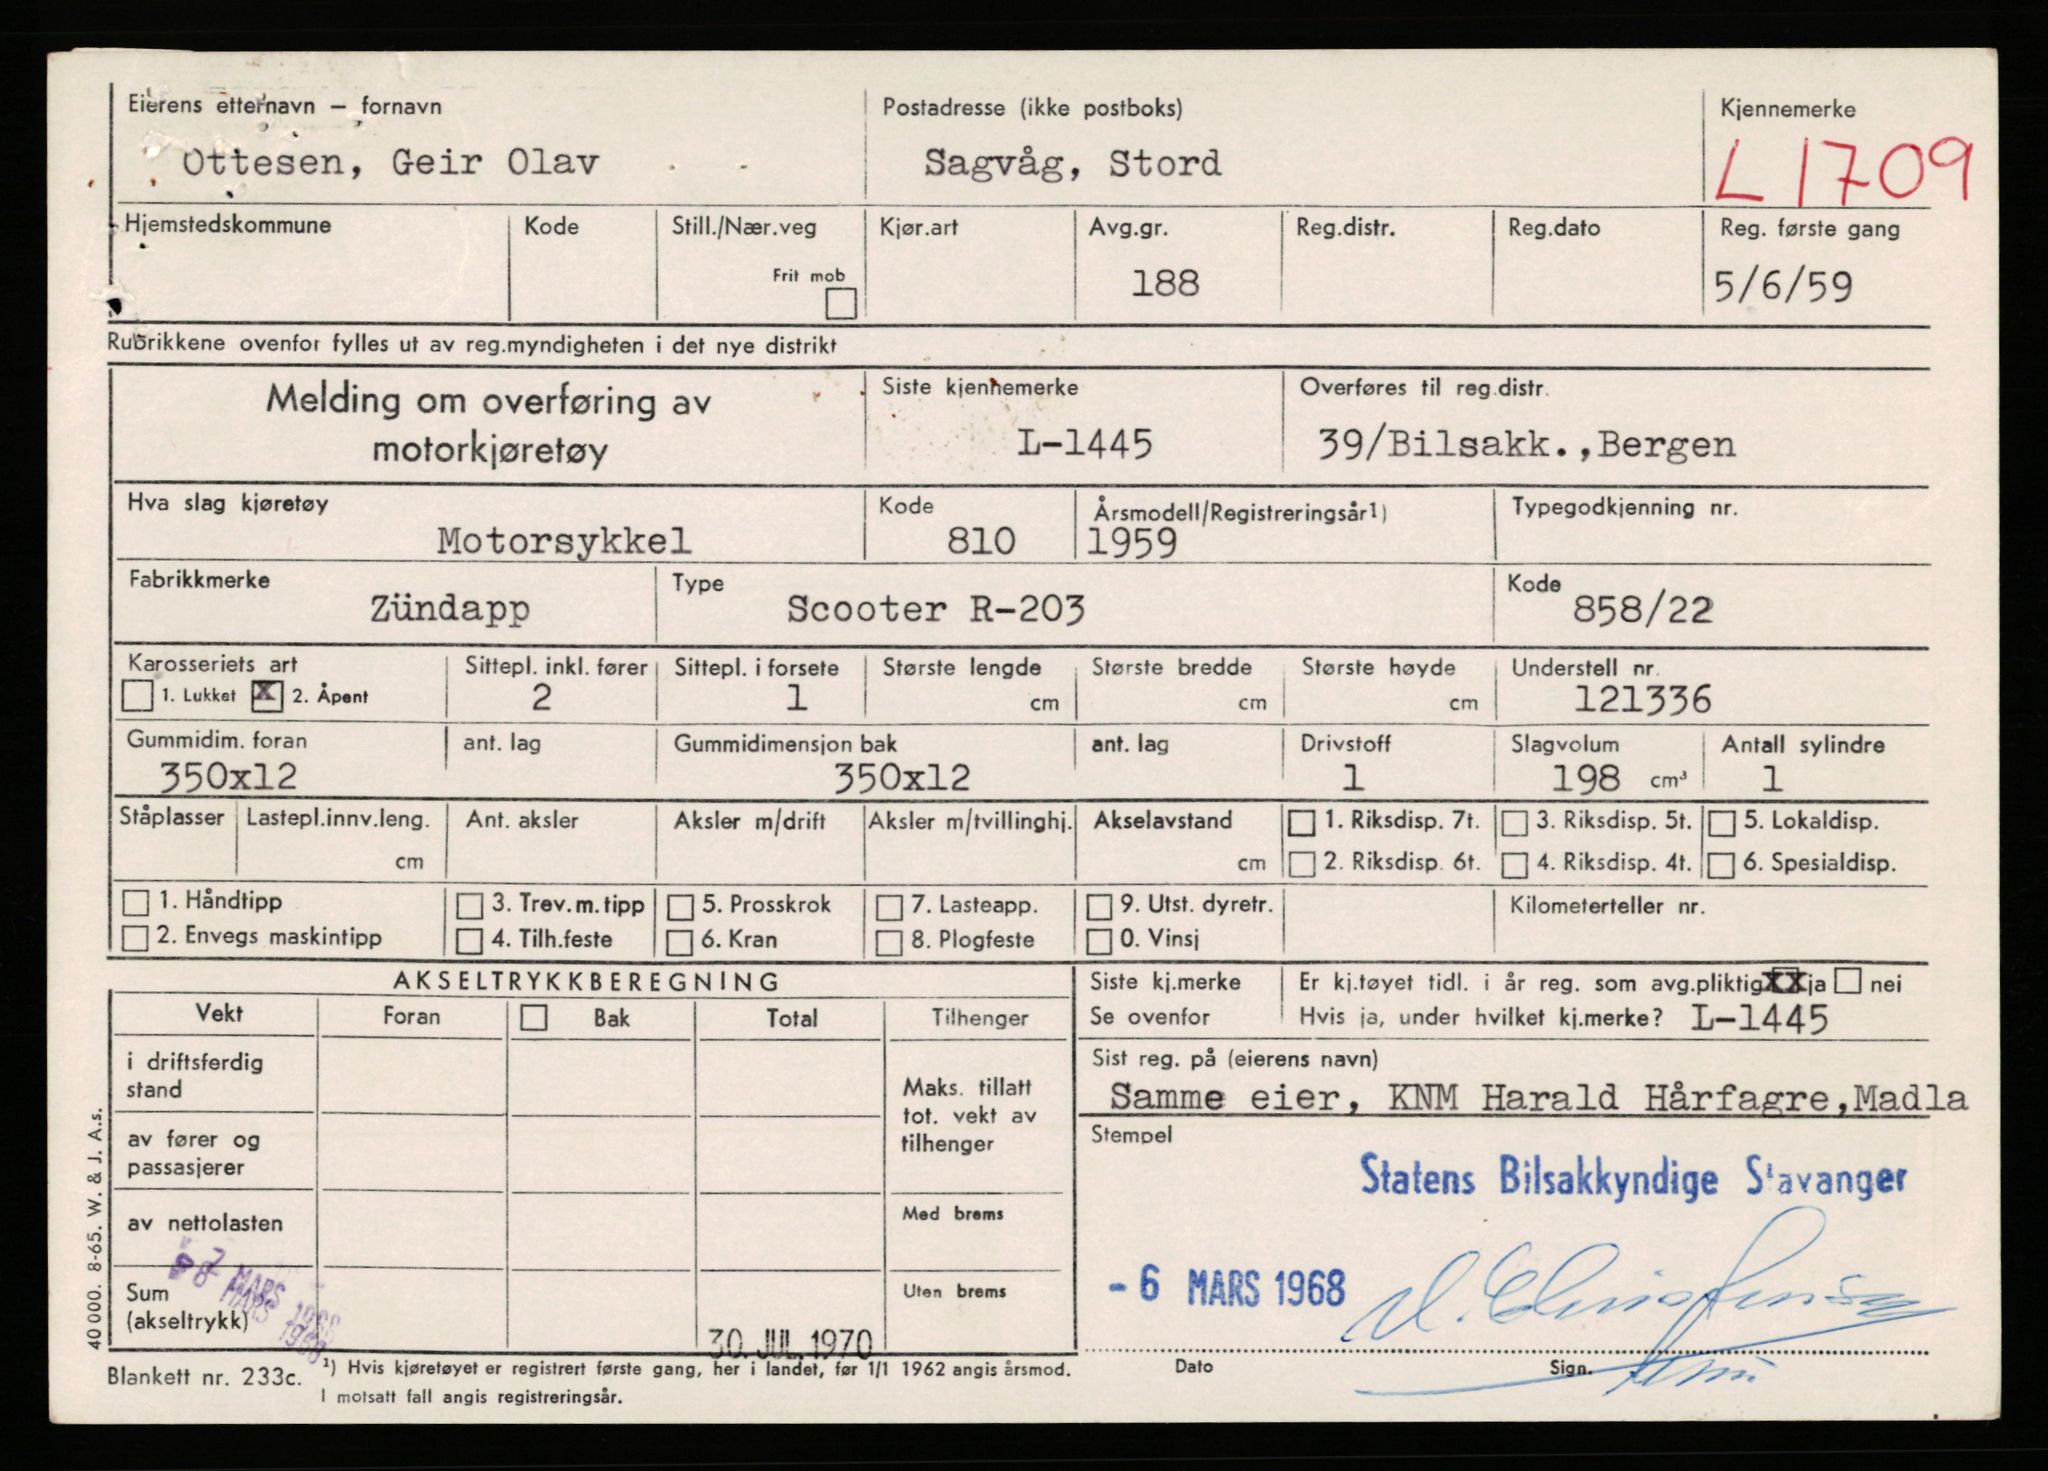 Eierens etternavn – fornavn
Postadresse (ikke postboks)
Kjennemerke
Ottesen, Geir Olav
Sagvåg, Stord
L 1709
Hjemstedskommune
Kode
Still./Nær.veg
Frit mob
Kjør.art
Avg.gr.
188
Reg.distr.
Reg.dato
Reg. første gang
5/6/59
Rubrikkene ovenfor fylles ut av reg.myndigheten i det nye distrikt
Melding om overføring av
motorkjøretøy
Siste kjennemerke
L-1445
Overføres til reg.distr.
39/Bilsakk.,Bergen
Hva slag kjøretøy
Motorsykkel
Kode
810
Årsmodell/Registreringsår1)
1959
Typegodkjenning nr.
Fabrikkmerke
Zündapp
Type
Scooter R-203
Kode
858/22
Karosseriets art
1. Lukket X 2. Åpent
Sittepl. inkl. fører
2
Sittepl. i forsete
1
Største lengde
cm
Største bredde
cm
Største høyde
cm
Understell nr.
121336
Gummidim. foran
350x12
ant. lag
Gummidimensjon bak
350x12
ant. lag
Drivstoff
1
Slagvolum
198 cm³
Antall sylindre
1
Ståplasser
Lastepl.innv.leng.
cm
Ant. aksler
Aksler m/drift
Aksler m/tvillinghj.
Akselavstand
cm
1. Riksdisp. 7t.
2. Riksdisp. 6t.
3. Riksdisp. 5t.
4. Riksdisp. 4t.
5. Lokaldisp.
6. Spesialdisp.
1. Håndtipp
2. Envegs maskintipp
3. Trev.m.tipp
4. Tilh.feste
5. Prosskrok
6. Kran
7. Lasteapp.
8. Plogfeste
9. Utst. dyretr.
0. Vinsj
Kilometerteller nr.
AKSELTRYKKBEREGNING
Vekt
Foran
Bak
Total
Tilhenger
i driftsferdig
stand
av fører og
passasjerer
av nettolasten
Sum
(akseltrykk)
Maks. tillatt
tot. vekt av
tilhenger
Med brems
Uten brems
7 MARS 1968
8 MARS 1968
30. JUL. 1970
Siste kj.merke
Se ovenfor
Er kj.tøyet tidl. i år reg. som avg.pliktig XX ja nei
Hvis ja, under hvilket kj.merke? L-1445
Sist reg. på (eierens navn)
Samme eier, KNM Harald Hårfagre,Madla
Stempel
Statens Bilsakkyndige Stavanger
- 6 MARS 1968
Dato
Sign.
40 000. 8-65. W. & J. A.s.
Blankett nr. 233c.
¹) Hvis kjøretøyet er registrert første gang, her i landet, før 1/1 1962 angis årsmod.
I motsatt fall angis registreringsår.